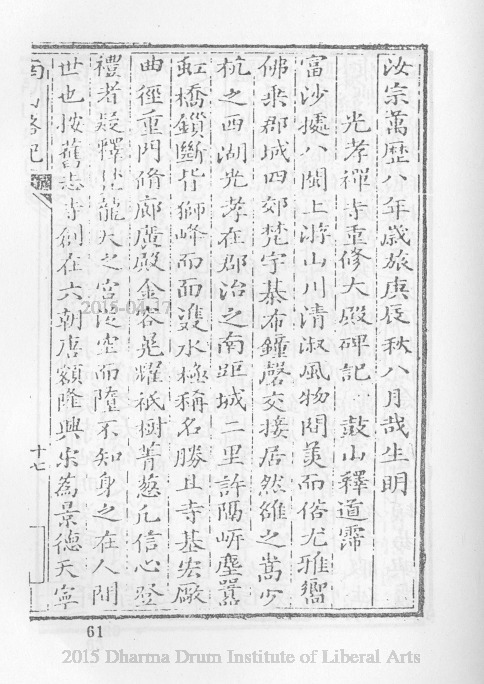 汝宗萬歷八年歲旅庚辰秋八月哉生明
光孝禪寺重修大殿碑記 鼓山釋道霈
富沙據八閩上游山川清淑風物閎美而俗尤雅嚮
佛乘郡城四郊梵宇棊布鐘磬交接居然維之嵩少
杭之西湖光孝在郡治之南距城二里許隔岍塵囂
虹橋鎖斷背獅峰而面雙水極稱名勝且寺基宏厰
曲徑重門脩廊廣殿金容晃耀祇樹菁葱凡信心登
禮者疑釋迦龍天之宮從空而墮不知身之在人間
世也按舊志寺創在六朝唐額隆興宋為景德天寧
十七
61
2015-04-17
2015 Dharma Drum Institute of Liberal Arts